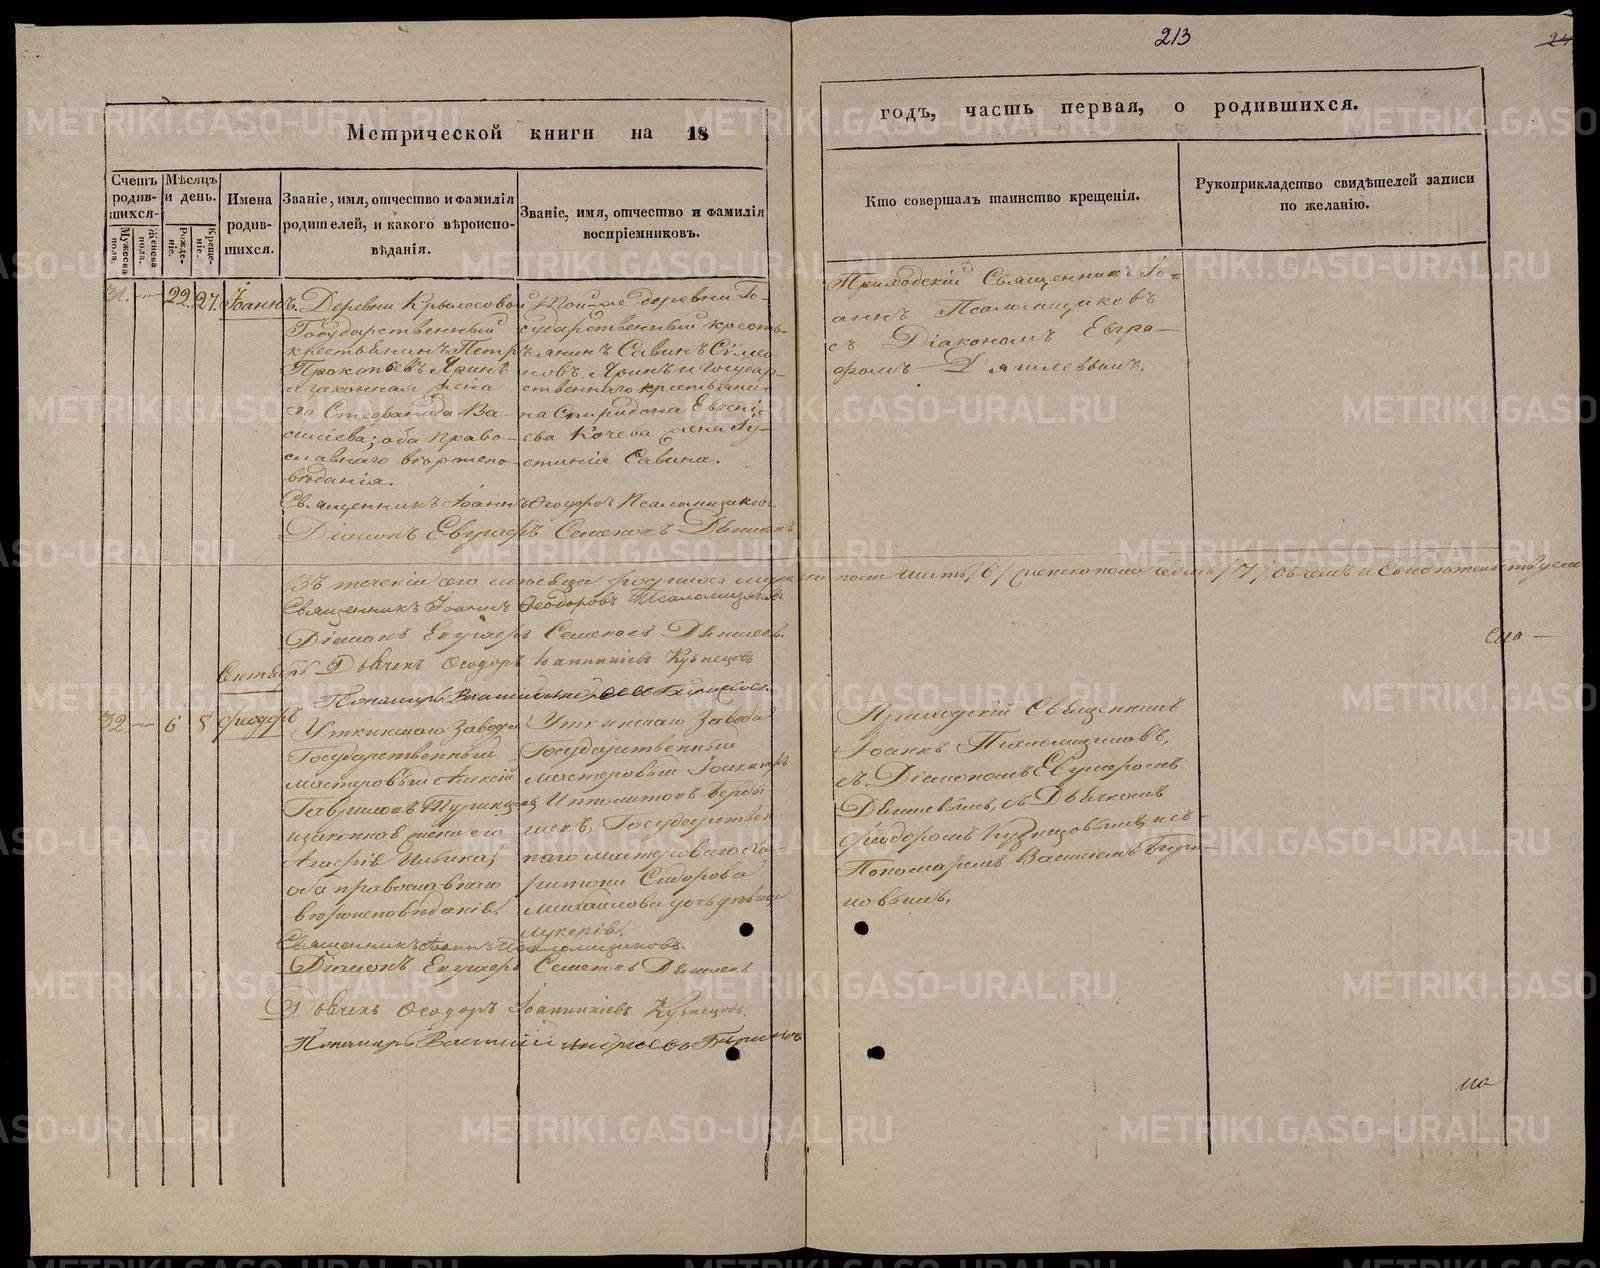 213
Метрической книги на 18
годъ, часть первая, о родившихся.
Счетъ родив-шихся.
Мужеска пола.
Женска пола.
Мѣсяцъ и день.
Рожде-ніе.
Креще-ніе.
Имена родив-шихся.
Званіе, имя, отчество и фамилія родителей, и какого вѣроиспо-вѣданія.
Званіе, имя, отчество и фамилія воспріемниковъ.
Кто совершалъ таинство крещенія.
Рукоприкладство свидѣтелей записи по желанію.
31. 22. 27. Іоаннъ.
Деревни Крылосовой
Государственный
крестьянинъ Петръ
Прокопьевъ Яринъ
и законная жена
его Стефанида Ва-
сильева; оба право-
славнаго вѣроиспо-
вѣданія.
Той-же деревни Го-
сударственный кресть-
янинъ Савинъ Симео
новъ Яринъ и государ-
ственнаго крестьяни-
на Спиридона Евгені-
ева Кочева жена Іу-
стинія Савина.
Приходскій Священникъ Іо-
аннъ Псаломщиковъ
съ Діакономъ Евгра-
фомъ Дягилевымъ.
Священникъ Іоаннъ Ѳеодоровъ Псаломщиковъ.
Діаконъ Евграфъ Семеновъ Дягилевъ
Въ теченіи сего мѣсяца родилось мужеска пола шесть /6/ женска пола седмь /7/ въ чемъ и Свидѣтельствуемъ
Священникъ Іоаннъ Ѳеодоровъ Псаломщиковъ.
Діаконъ Евграфъ Семеновъ Дягилевъ.
Дьячекъ Ѳеодоръ Іоанникіевъ Кузнецовъ
Сентябрь
32. 6 8 Ѳеодоръ
Уткинскаго Завода
Государственный
мастеровый Алексій
Гавриловъ
и законная жена его
Агафія Ильина;
оба православнаго
вѣроисповѣданія.
Уткинскаго Завода
Государственный
мастеровый
Ипполитовъ
Государствен
наго мастероваго Ха
ритона Сидорова
Михайлова дочь дѣвица
Лукерія.
Приходскій Священникъ
Іоаннъ Псаломщиковъ,
съ Діакономъ Евграфомъ
Дягилевымъ, съ Дьячкомъ
Ѳеодоромъ Кузнецовымъ и съ
Пономаремъ Василіемъ Бири-
ковымъ.
Священникъ Іоаннъ Псаломщиковъ.
Діаконъ Евграфъ Семеновъ Дягилевъ
Дьячекъ Ѳеодоръ Іоанникіевъ Кузнецовъ.
Пономарь Василій
METRIKI.GASO-URAL.RU